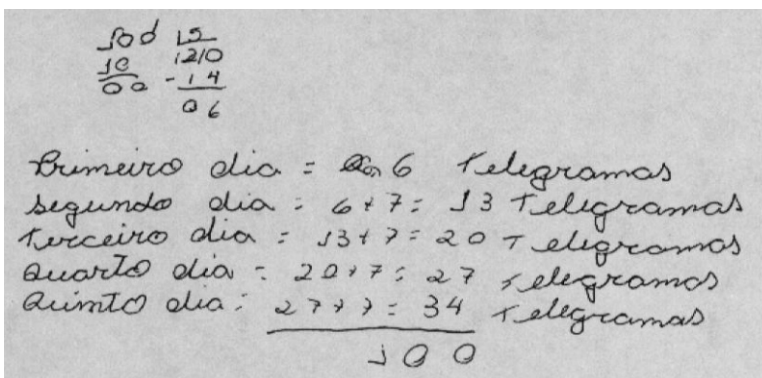 100 5
10 20
00 - 14
06
Primeiro dia = 6 Telegramas
Segundo dia = 6 + 7 = 13 Telegramas
Terceiro dia = 13 + 7 = 20 Telegramas
Quarto dia = 20 + 7 = 27 Telegramas
Quinto dia = 27 + 7 = 34 Telegramas
100